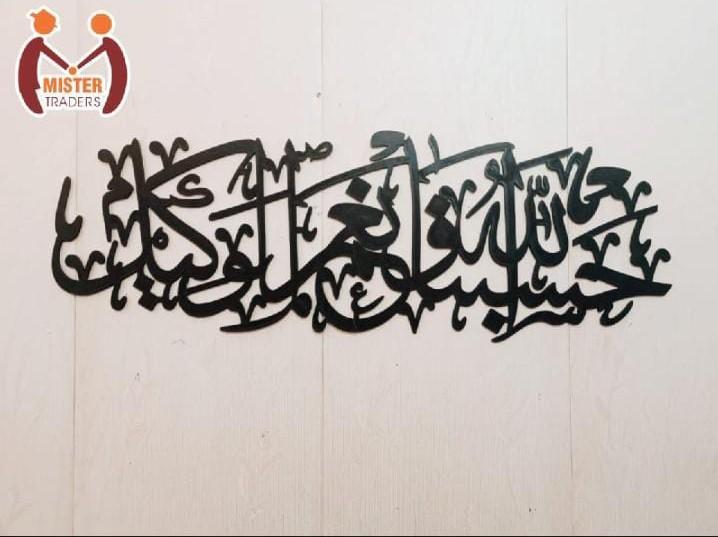 MISTER
TRADERS
حسبنا الله ونعم الوكيل